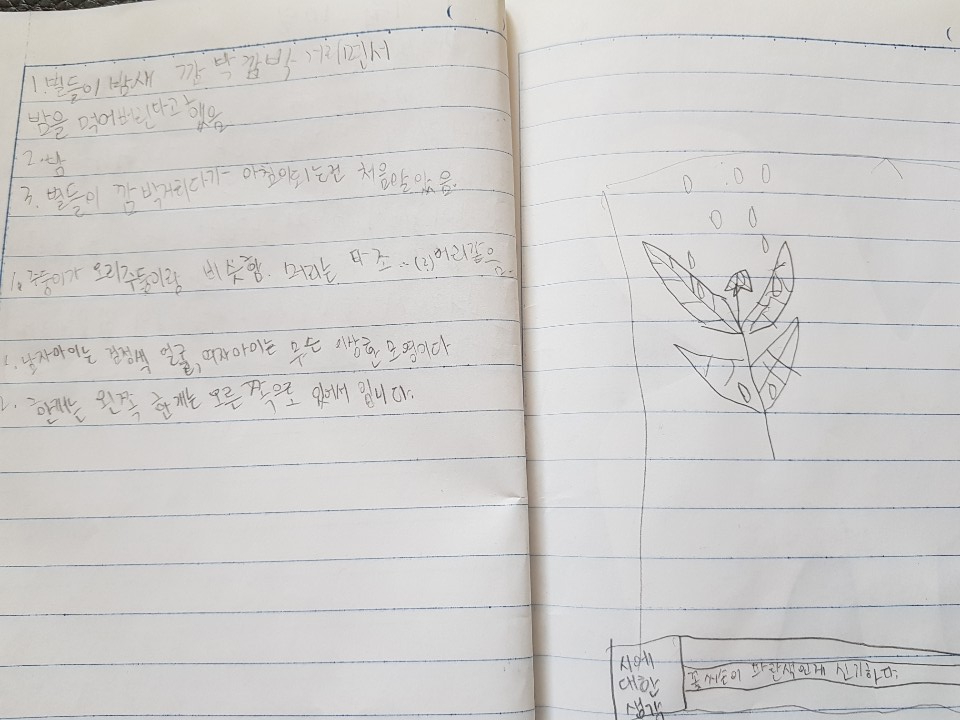 1. 별들이 밤새 깜 박 깜박 거리면서
밤을 먹어버린다고 했음
2. 밤
3. 별들이 깜박거리다가 아침이되는건 처음알았음.
1. 주둥이가 오리주둥이랑 비슷함. 머리는 타조 머리같음.
1. 남자아이는 검정색 얼굴, 여자아이는 무슨 이상한 모양이다
2. 한개는 왼쪽 한개는 오른쪽으로 있어서 입니다.
시에
대한
생각
이 파란색인게 신기하다.